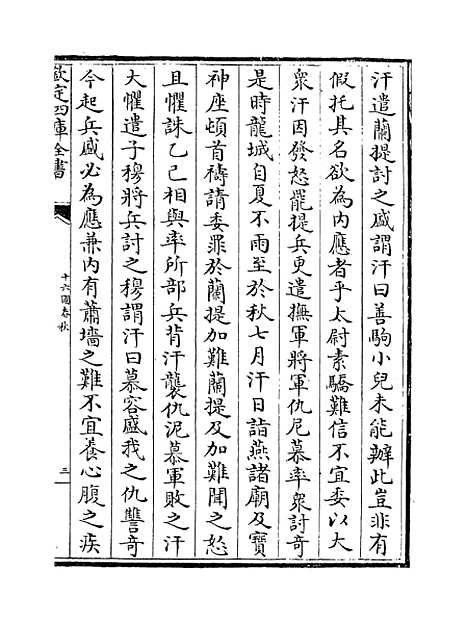 汗遣蘭提討之盛謂汗曰善駒小兒未能辦此豈非有
假托其名欲為內應者乎太尉素驕難信不宜委以大
衆汗因發怒罷提兵更遣撫軍將軍仇尼慕率衆討奇
是時龍城自夏不雨至於秋七月汗日詣燕諸廟及寶
神座頓首禱請委罪於蘭提加難蘭提及加難聞之怒
且懼誅乙己相與率所部兵背汗襲仇泥慕軍敗之汗
大懼遣子穆將兵討之穆謂汗曰慕容盛我之仇讐奇
今起兵盛必為應兼內有蕭墻之難不宜養心腹之疾
欽定四庫全書
十六國春秋
三